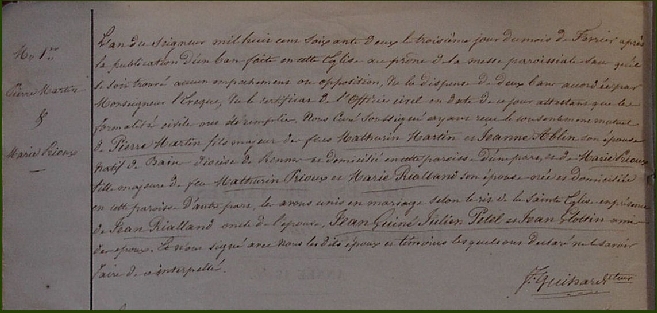 No 1er
Pierre Martin
&
Marie Prioux
L'an du Seigneur mil huit cent soixante deux le troisième jour du mois de Février après
la publication d'un ban faite en cette Eglise au prône de la messe paroissiale sans qu'il
se soit trouvé aucun empêchement ou opposition, vu la dispense de deux bans accordée par
Monseigneur l'Evêque, vu le certificat de l'Officier civil en date de ce jour attestant que les
formalités civiles ont été remplies. Nous Curé soussigné ayant reçu le consentement mutuel
de Pierre Martin fils majeur de feu Mathurin Martin et Jeanne Ablin son épouse
natif de Bain diocèse de Rennes et domicilié en cette paroisse d'une part, et de Marie Prioux
fille majeure de feu Mathurin Prioux et Marie Rialland son épouse née et domiciliée
en cette paroisse d'autre part, les avons unis en mariage selon le rit de la Sainte Eglise en présence
de Jean Rialland oncle de l'épouse, Jean Julien et Jean amis
des époux. Le nous signé avec nous les dits époux et témoins lesquels ont déclaré ne savoir
faire de ce interpellés.
J. Guihard